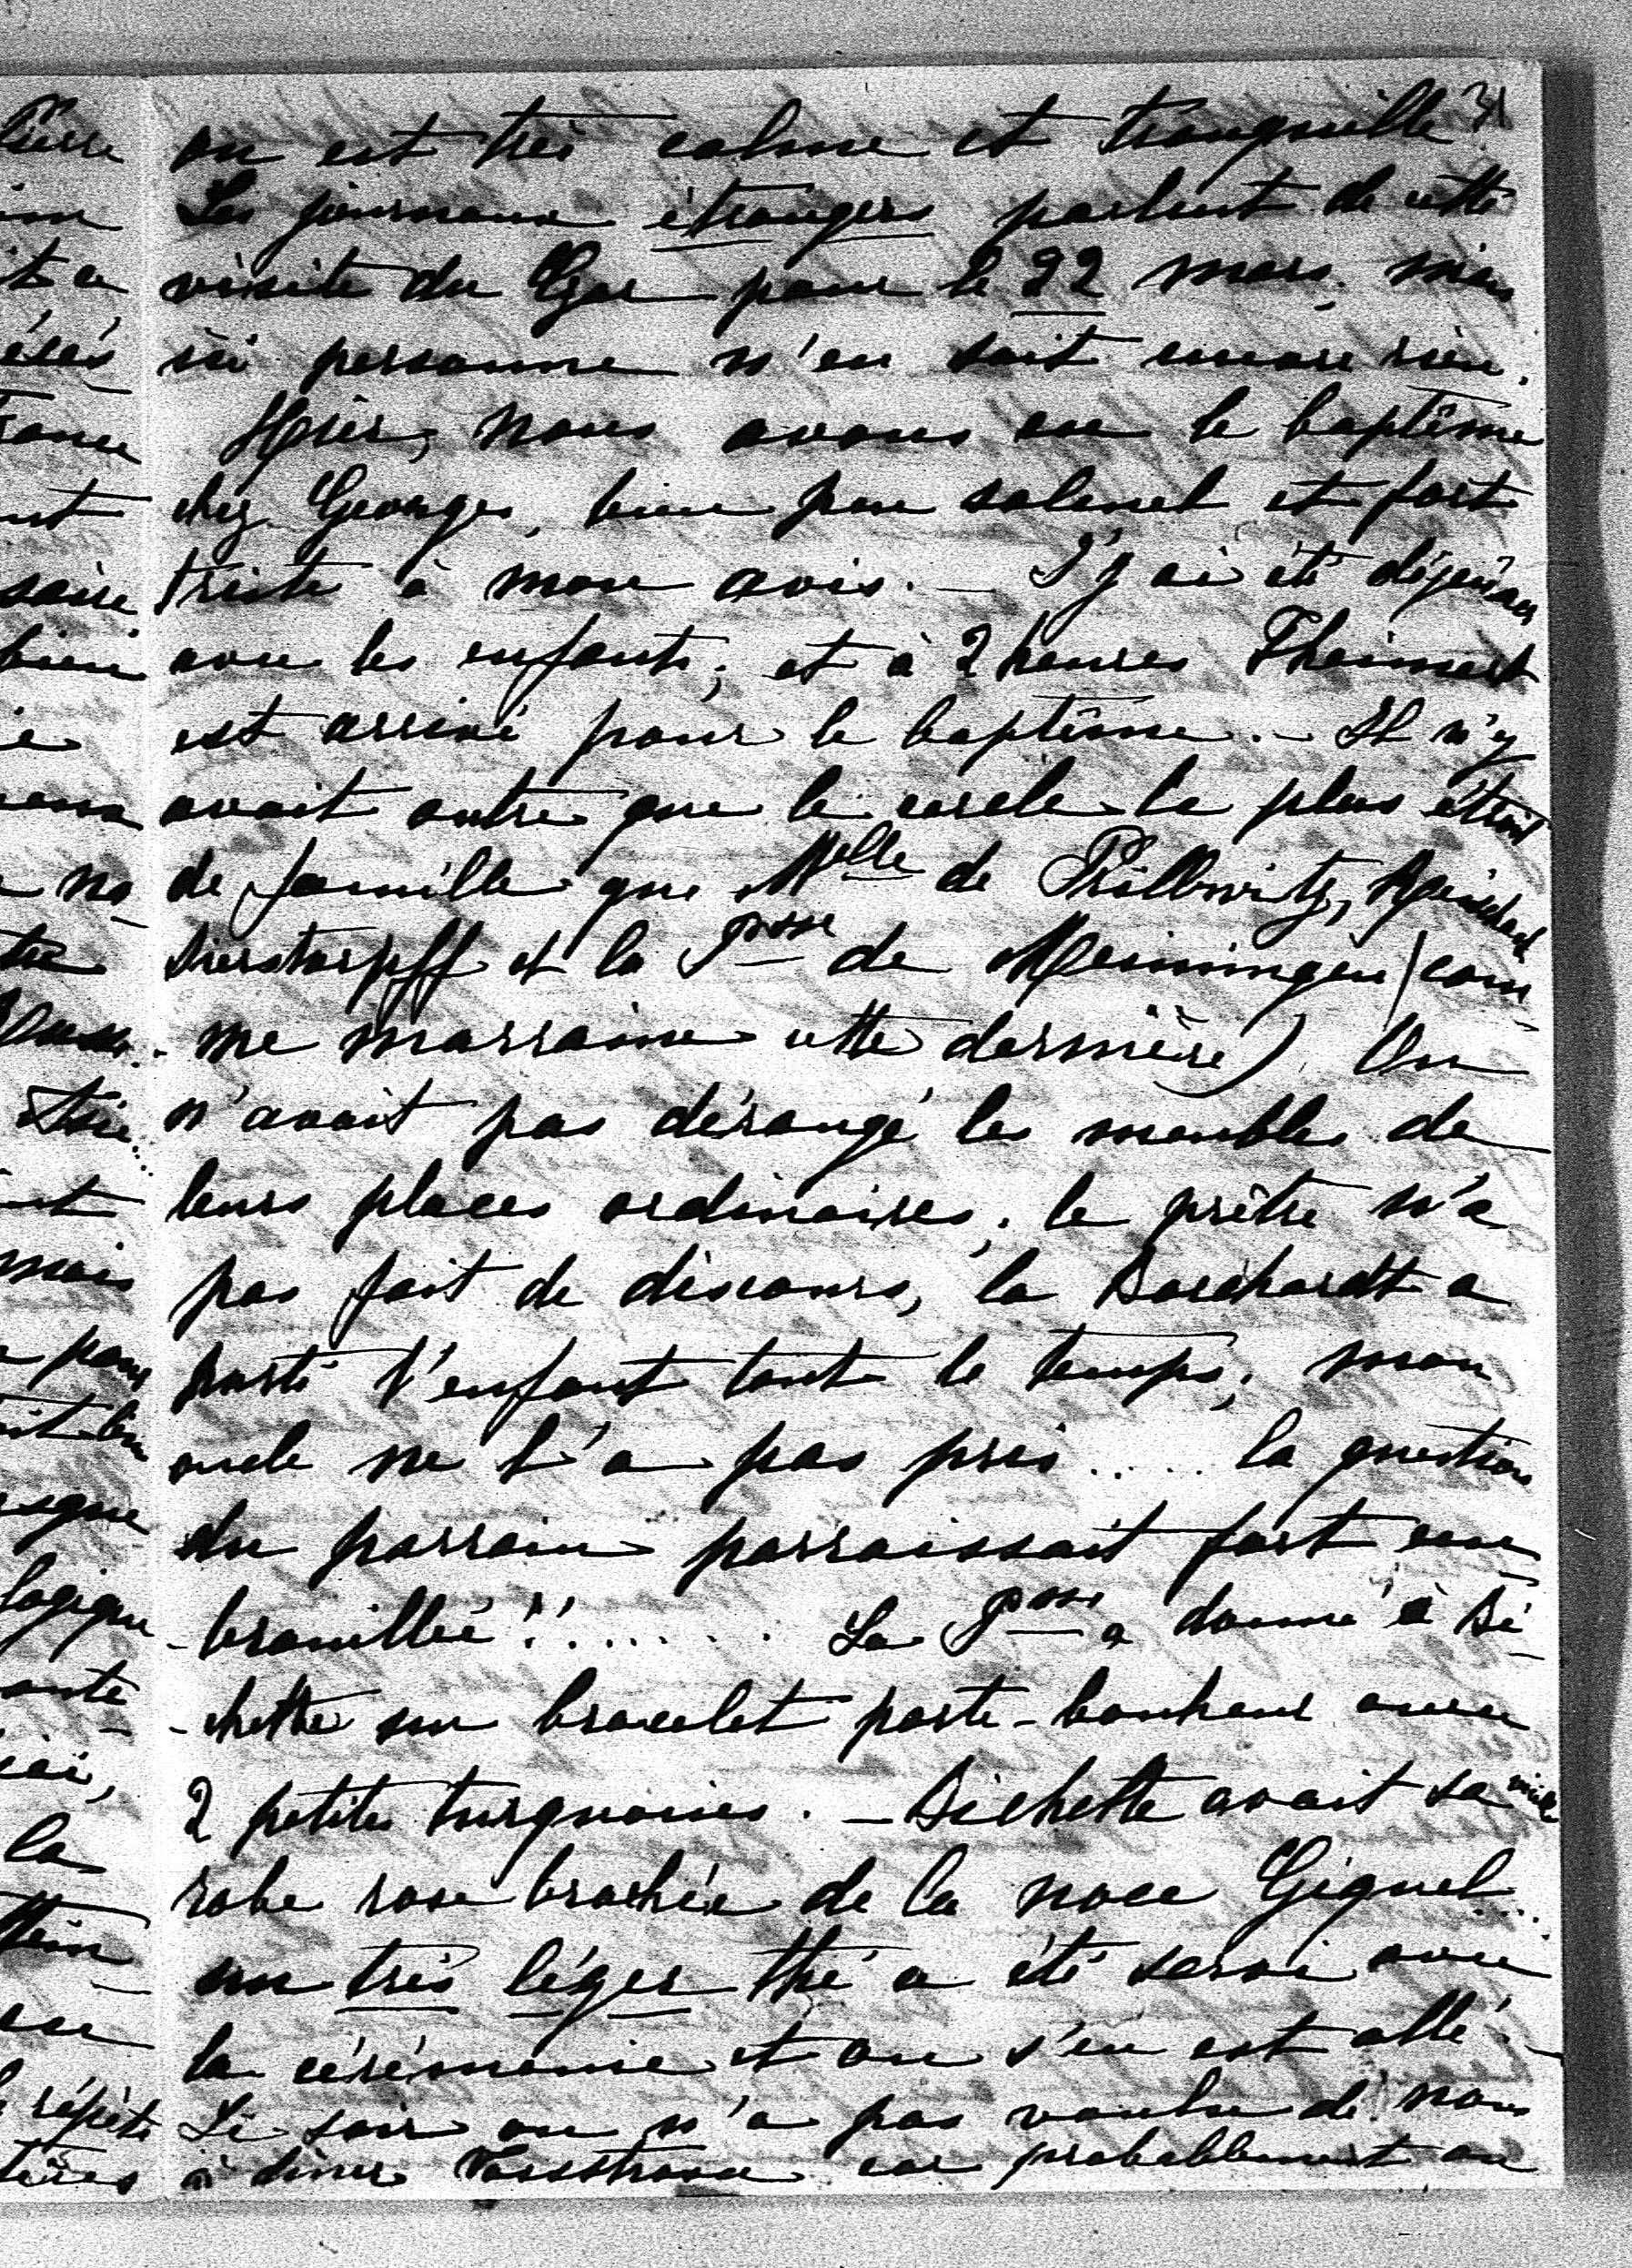 31
on est très calme et tranquille
Les journaux étrangers parlent de cette
visite du Czar pour le 22 mars, mais
ici personne n'en sait encore rien.
Hier, nous avons eu le baptême
chez Georges, bien peu solennel et fort
triste à mon avis. — J'y ai été déjeûner
avec les enfants; et à 2 heures
est arrivé pour le baptême. — Il n'y
avait outre que le cercle le plus étroit
de famille que Melle de Prillwitz,
et la Psse de Meiningen (com
me marraine cette dernière) On
n'avait pas dérangé les meubles de
leurs places ordinaires; le prêtre n'a
pas fait de discours, la Borchardt a
porté l'enfant tout le temps; mon
oncle ne l'a pas pris ..... la question
du parrain parraissait fort em
-brouillée!! ....... La Psse a donné à Bi
-chette un bracelet porte-bonheur avec
2 petites turquoises. — Bichette avait sa vieille
robe rose brochée de la noce Giquel...
un très léger thé a été servi avec
la cérémonie et on s'en est allé. —
Le soir on n'a pas voulu de nous
à dîner Vossstrasse car probablement on